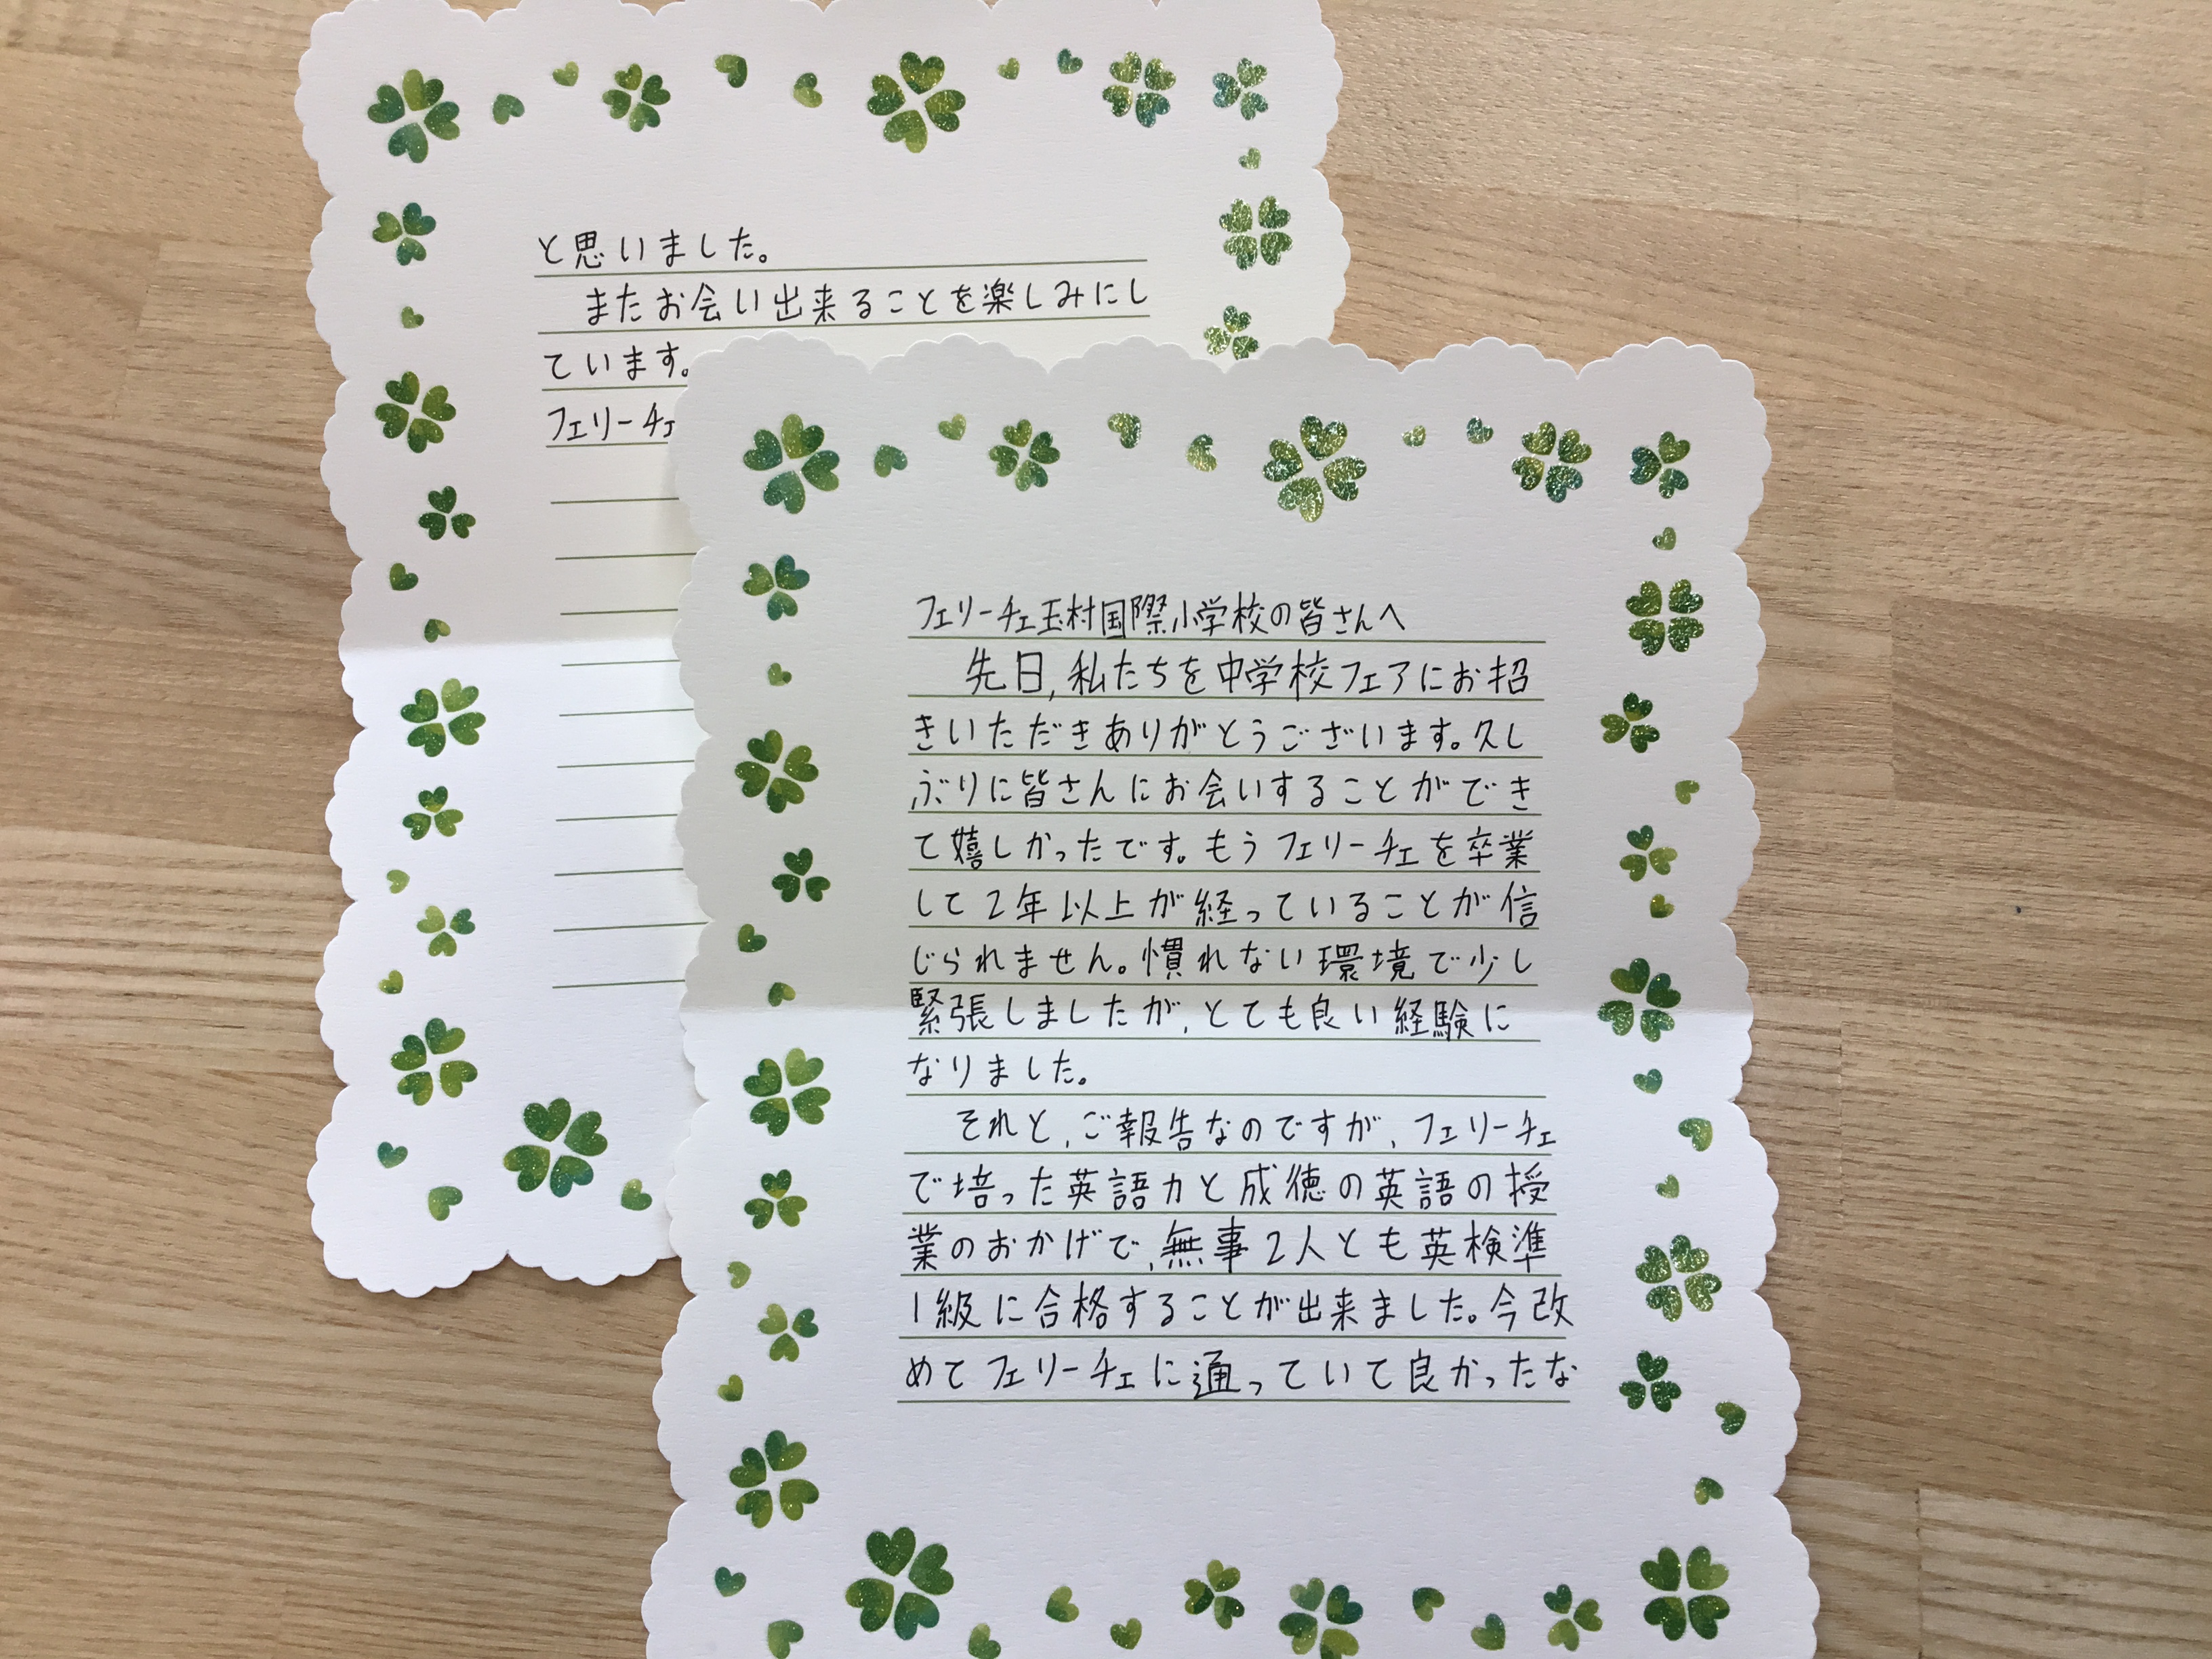 フェリーチェ玉村国際小学校の皆さんへ
先日,私たちを中学校フェアにお招
きいただきありがとうございます。久し
ぶりに皆さんにお会いすることができ
て嬉しかったです。もうフェリーチェを卒業
して2年以上が経っていることが信
じられません。慣れない環境で少し
緊張しましたが,とても良い経験に
なりました。
それと,ご報告なのですが,フェリーチェ
で培った英語力と成徳の英語の授
業のおかげで,無事2人とも英検準
1級に合格することが出来ました。今改
めてフェリーチェに通っていて良かったな
と思いました。
またお会い出来ることを楽しみにし
ています。
フェリーチェ